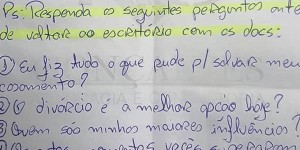 Ps: Responda os seguintes perguntas ante
de voltar ao escritório com os docs:
① Eu fiz tudo o que pude p/ salvar meu
casamento?
② O divórcio é a melhor opção hoje?
③ Quem são minhas maiores influências?
vezes